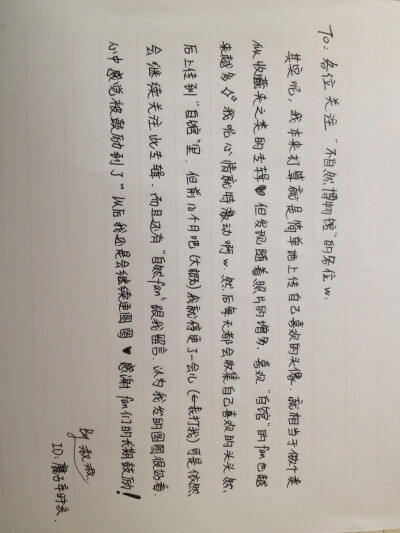 To: 各位关注 "不自然博物馆"的各位w.
其实呢,我本来打算就是简单地上传自己喜欢的头像.就相当于做个类
似收藏夹之类的专辑♥但发现随着照片的增多.喜欢"自馆"的fan也越
来越多 我呢心情就特激动啊w.然后每天都会收集自己喜欢的头头然
后上传到"自馆"里.但前几个月吧(大概)我就停更了一会儿(←走打我)可是依然
会继续关注此专辑.而且还有"自然fan"跟我留言.认为我发的图图很好看.
心中感觉被鼓励到了~以后我还是会继续更图图♥感谢fan们的长期鼓励!
By 叔叔
ID: